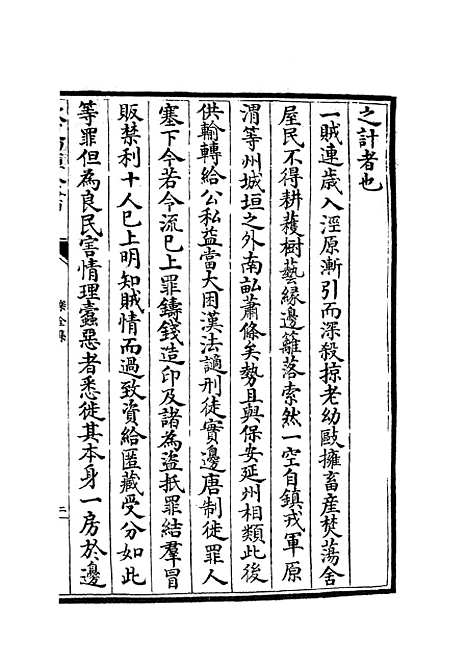 之計者也
一賊連歲入涇原漸引而深殺掠老幼敺擁畜産焚蕩舍
屋民不得耕穫樹藝緣邊籬落索然一空自鎮戎軍原
渭等州城垣之外南畝蕭條矣勢且與保安延州相類此後
供輸轉給公私益當大困漢法謫刑徒實邊唐制徙罪人
塞下今若令流已上罪鑄錢造印及諸為盜抵罪結羣冒
販禁利十人已上明知賊情而過致資給匿藏受分如此
等罪但為良民害情理蠹惡者悉徙其本身一房於邊
樂全集
二